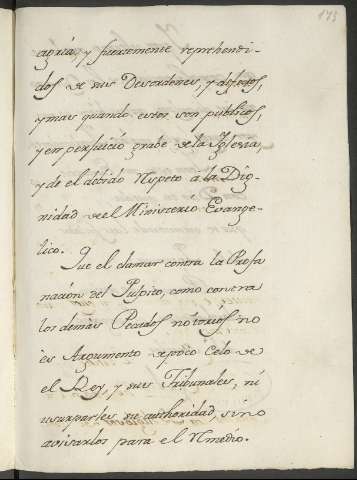 173
agria, y fuertemente reprehendi-
dos de sus Desordenes, y defectos,
y mas quando estos son publicos,
y en perjuicio grabe de la Iglesia,
y de el debido Respeto à la Dig-
nidad de el Ministerio Evange-
lico.
Que el clamar contra la Profa
nacion del Pulpito, como contra
los demàs Pecados notorios no
es Argumento de poco Celo de
el Rey, y sus Tribunales, ni
usurparles su authoridad, sino
avisarlos para el Rmedio.